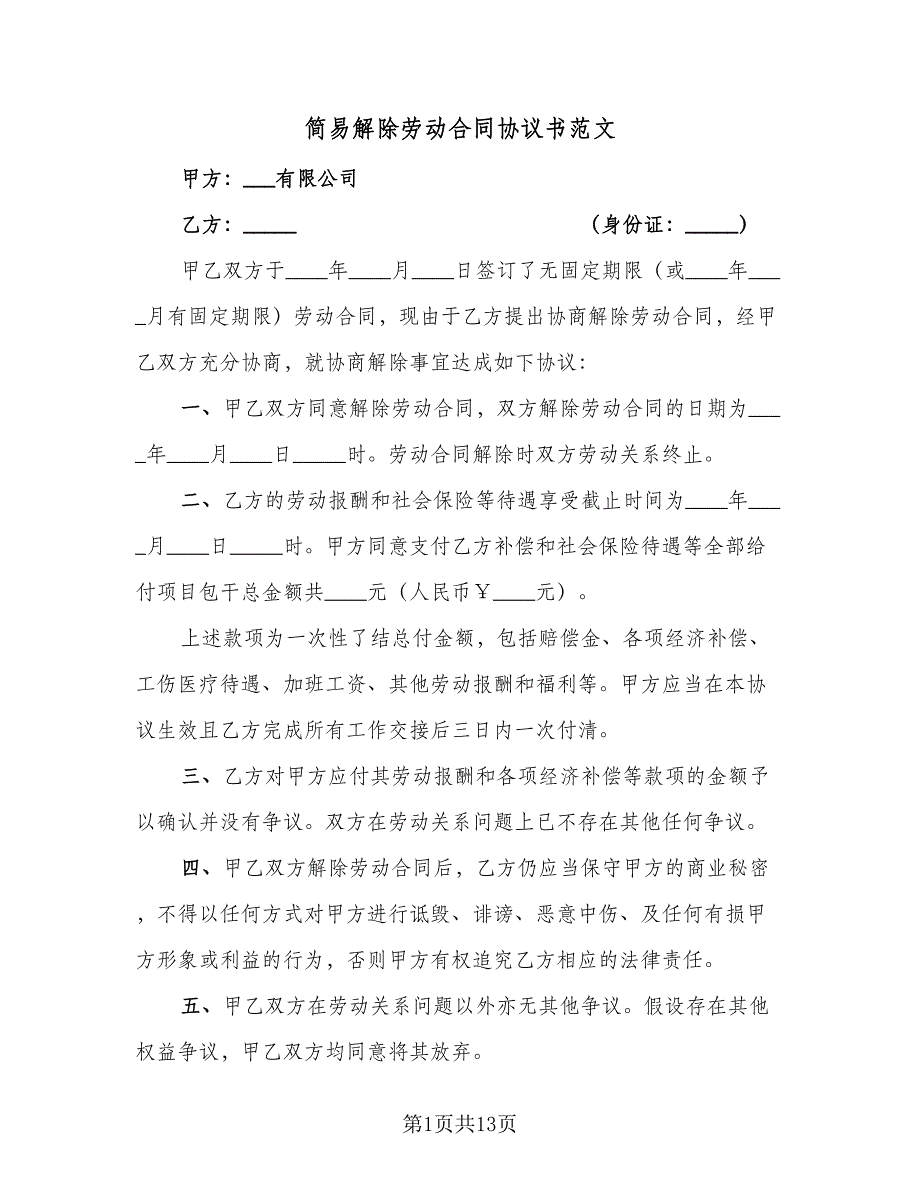 简易解除劳动合同协议书范文
甲方：___有限公司
乙方：_____ （身份证：_____）
甲乙双方于____年____月____日签订了无固定期限（或____年___
_月有固定期限）劳动合同，现由于乙方提出协商解除劳动合同，经甲
乙双方充分协商，就协商解除事宜达成如下协议：
一、甲乙双方同意解除劳动合同，双方解除劳动合同的日期为___
_年____月____日_____时。劳动合同解除时双方劳动关系终止。
二、乙方的劳动报酬和社会保险等待遇享受截止时间为____年___
_月____日_____时。甲方同意支付乙方补偿和社会保险待遇等全部给
付项目包干总金额共____元（人民币￥____元）。
上述款项为一次性了结总付金额，包括赔偿金、各项经济补偿、
工伤医疗待遇、加班工资、其他劳动报酬和福利等。甲方应当在本协
议生效且乙方完成所有工作交接后三日内一次付清。
三、乙方对甲方应付其劳动报酬和各项经济补偿等款项的金额予
以确认并没有争议。双方在劳动关系问题上已不存在其他任何争议。
四、甲乙双方解除劳动合同后，乙方仍应当保守甲方的商业秘密
，不得以任何方式对甲方进行诋毁、诽谤、恶意中伤、及任何有损甲
方形象或利益的行为，否则甲方有权追究乙方相应的法律责任。
五、甲乙双方在劳动关系问题以外亦无其他争议。假设存在其他
权益争议，甲乙双方均同意将其放弃。
第1页共13页